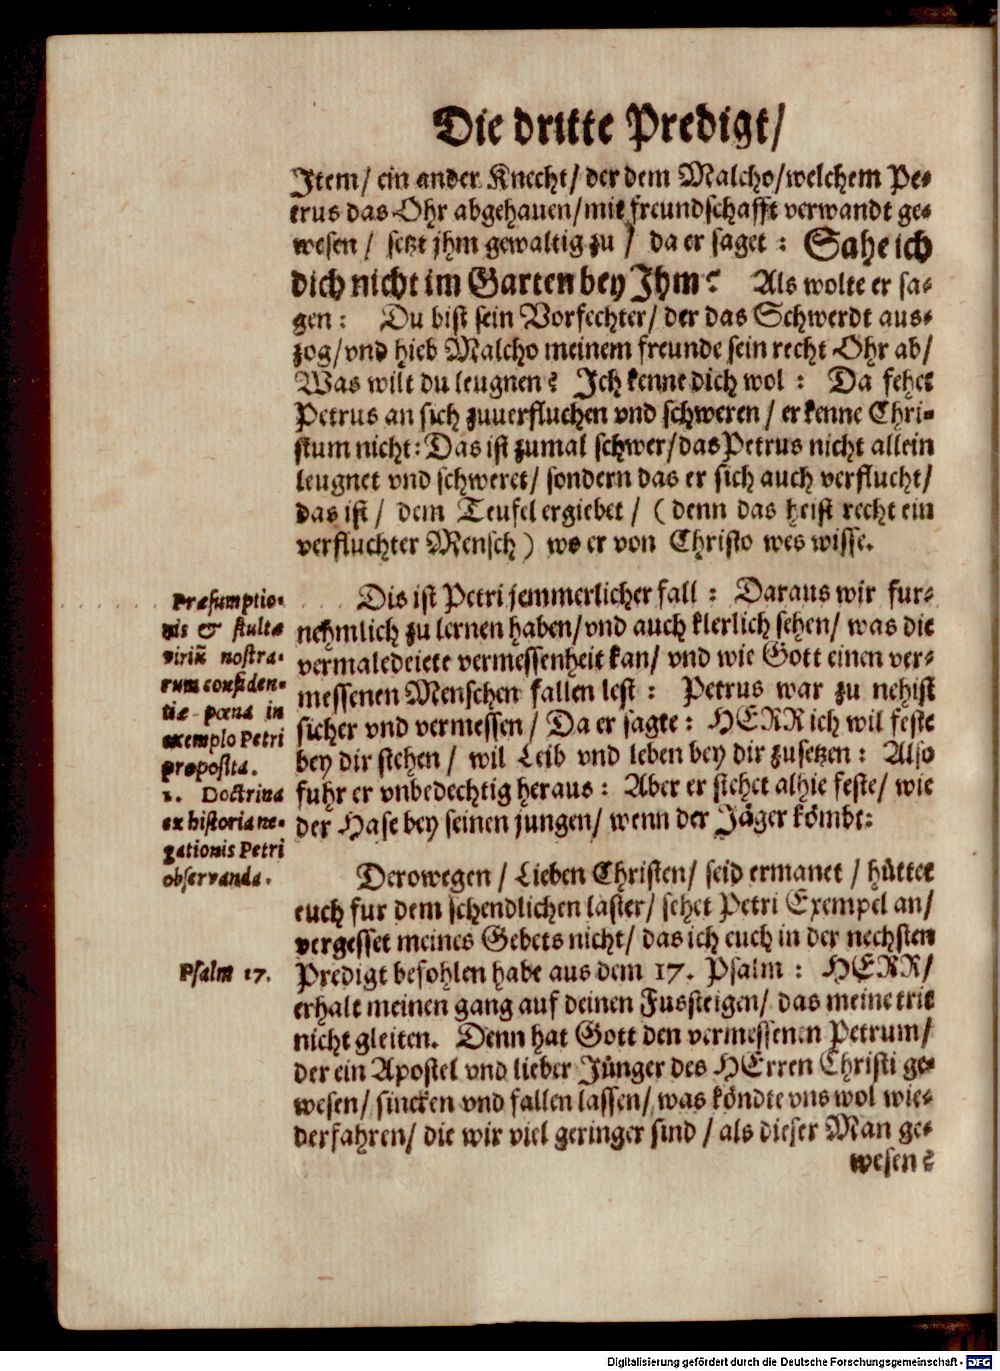 Die dritte Predigt/
Item/ ein ander Knecht/ der dem Malcho/welchem Pe-
trus das Ohr abgehauen/mit freundschafft verwandt ge-
wesen / setzt jhm gewaltig zu / da er saget : Sahe ich
dich nicht im Garten bey Ihm? Als wolte er sa-
gen : Du bist sein Vorfechter/ der das Schwerdt aus-
zog/vnd hieb Malcho meinem freunde sein recht Ohr ab/
Was wilt du leugnen? Ich kenne dich wol : Da fehet
Petrus an sich zuuerfluchen vnd schweren / er kenne Chri-
stum nicht: Das ist zumal schwer/das Petrus nicht allein
leugnet vnd schweret/ sondern das er sich auch verflucht/
das ist / dem Teufel ergiebet / ( denn das heist recht ein
verfluchter Mensch ) wo er von Christo wes wisse.
Dis ist Petri jemmerlicher fall : Daraus wir fur-
nehmlich zu lernen haben/vnd auch klerlich sehen/ was die
vermaledeiete vermessenheit kan/ vnd wie Gott einen ver-
messenen Menschen fallen lest : Petrus war zu nehist
sicher vnd vermessen / Da er sagte : HERR ich wil feste
bey dir stehen / wil Leib vnd leben bey dir zusetzen : Also
fuhr er vnbedechtig heraus : Aber er stehet alhie feste/ wie
der Hase bey seinen jungen/ wenn der Jäger kömbt:
Præsumptio-
nis & stultæ
viriū nostra-
rum confiden-
tiæ pœna in
exemplo Petri
proposita.
1. Doctrina
ex historia ne-
gationis Petri
observanda.
Derowegen / Lieben Christen/ seid ermanet / hüttet
euch fur dem schendlichen laster/ sehet Petri Exempel an/
vergesset meines Gebets nicht/ das ich euch in der nechsten
Predigt befohlen habe aus dem 17. Psalm : HERR/
erhalt meinen gang auf deinen Fussteigen/ das meine trit
nicht gleiten. Denn hat Gott den vermessenen Petrum/
der ein Apostel vnd lieber Jünger des HErren Christi ge-
wesen/ sincken vnd fallen lassen/ was köndte vns wol wie-
derfahren/ die wir viel geringer sind / als dieser Man ge-
wesen?
Psalm 17.
Digitalisierung gefördert durch die Deutsche Forschungsgemeinschaft - DFG